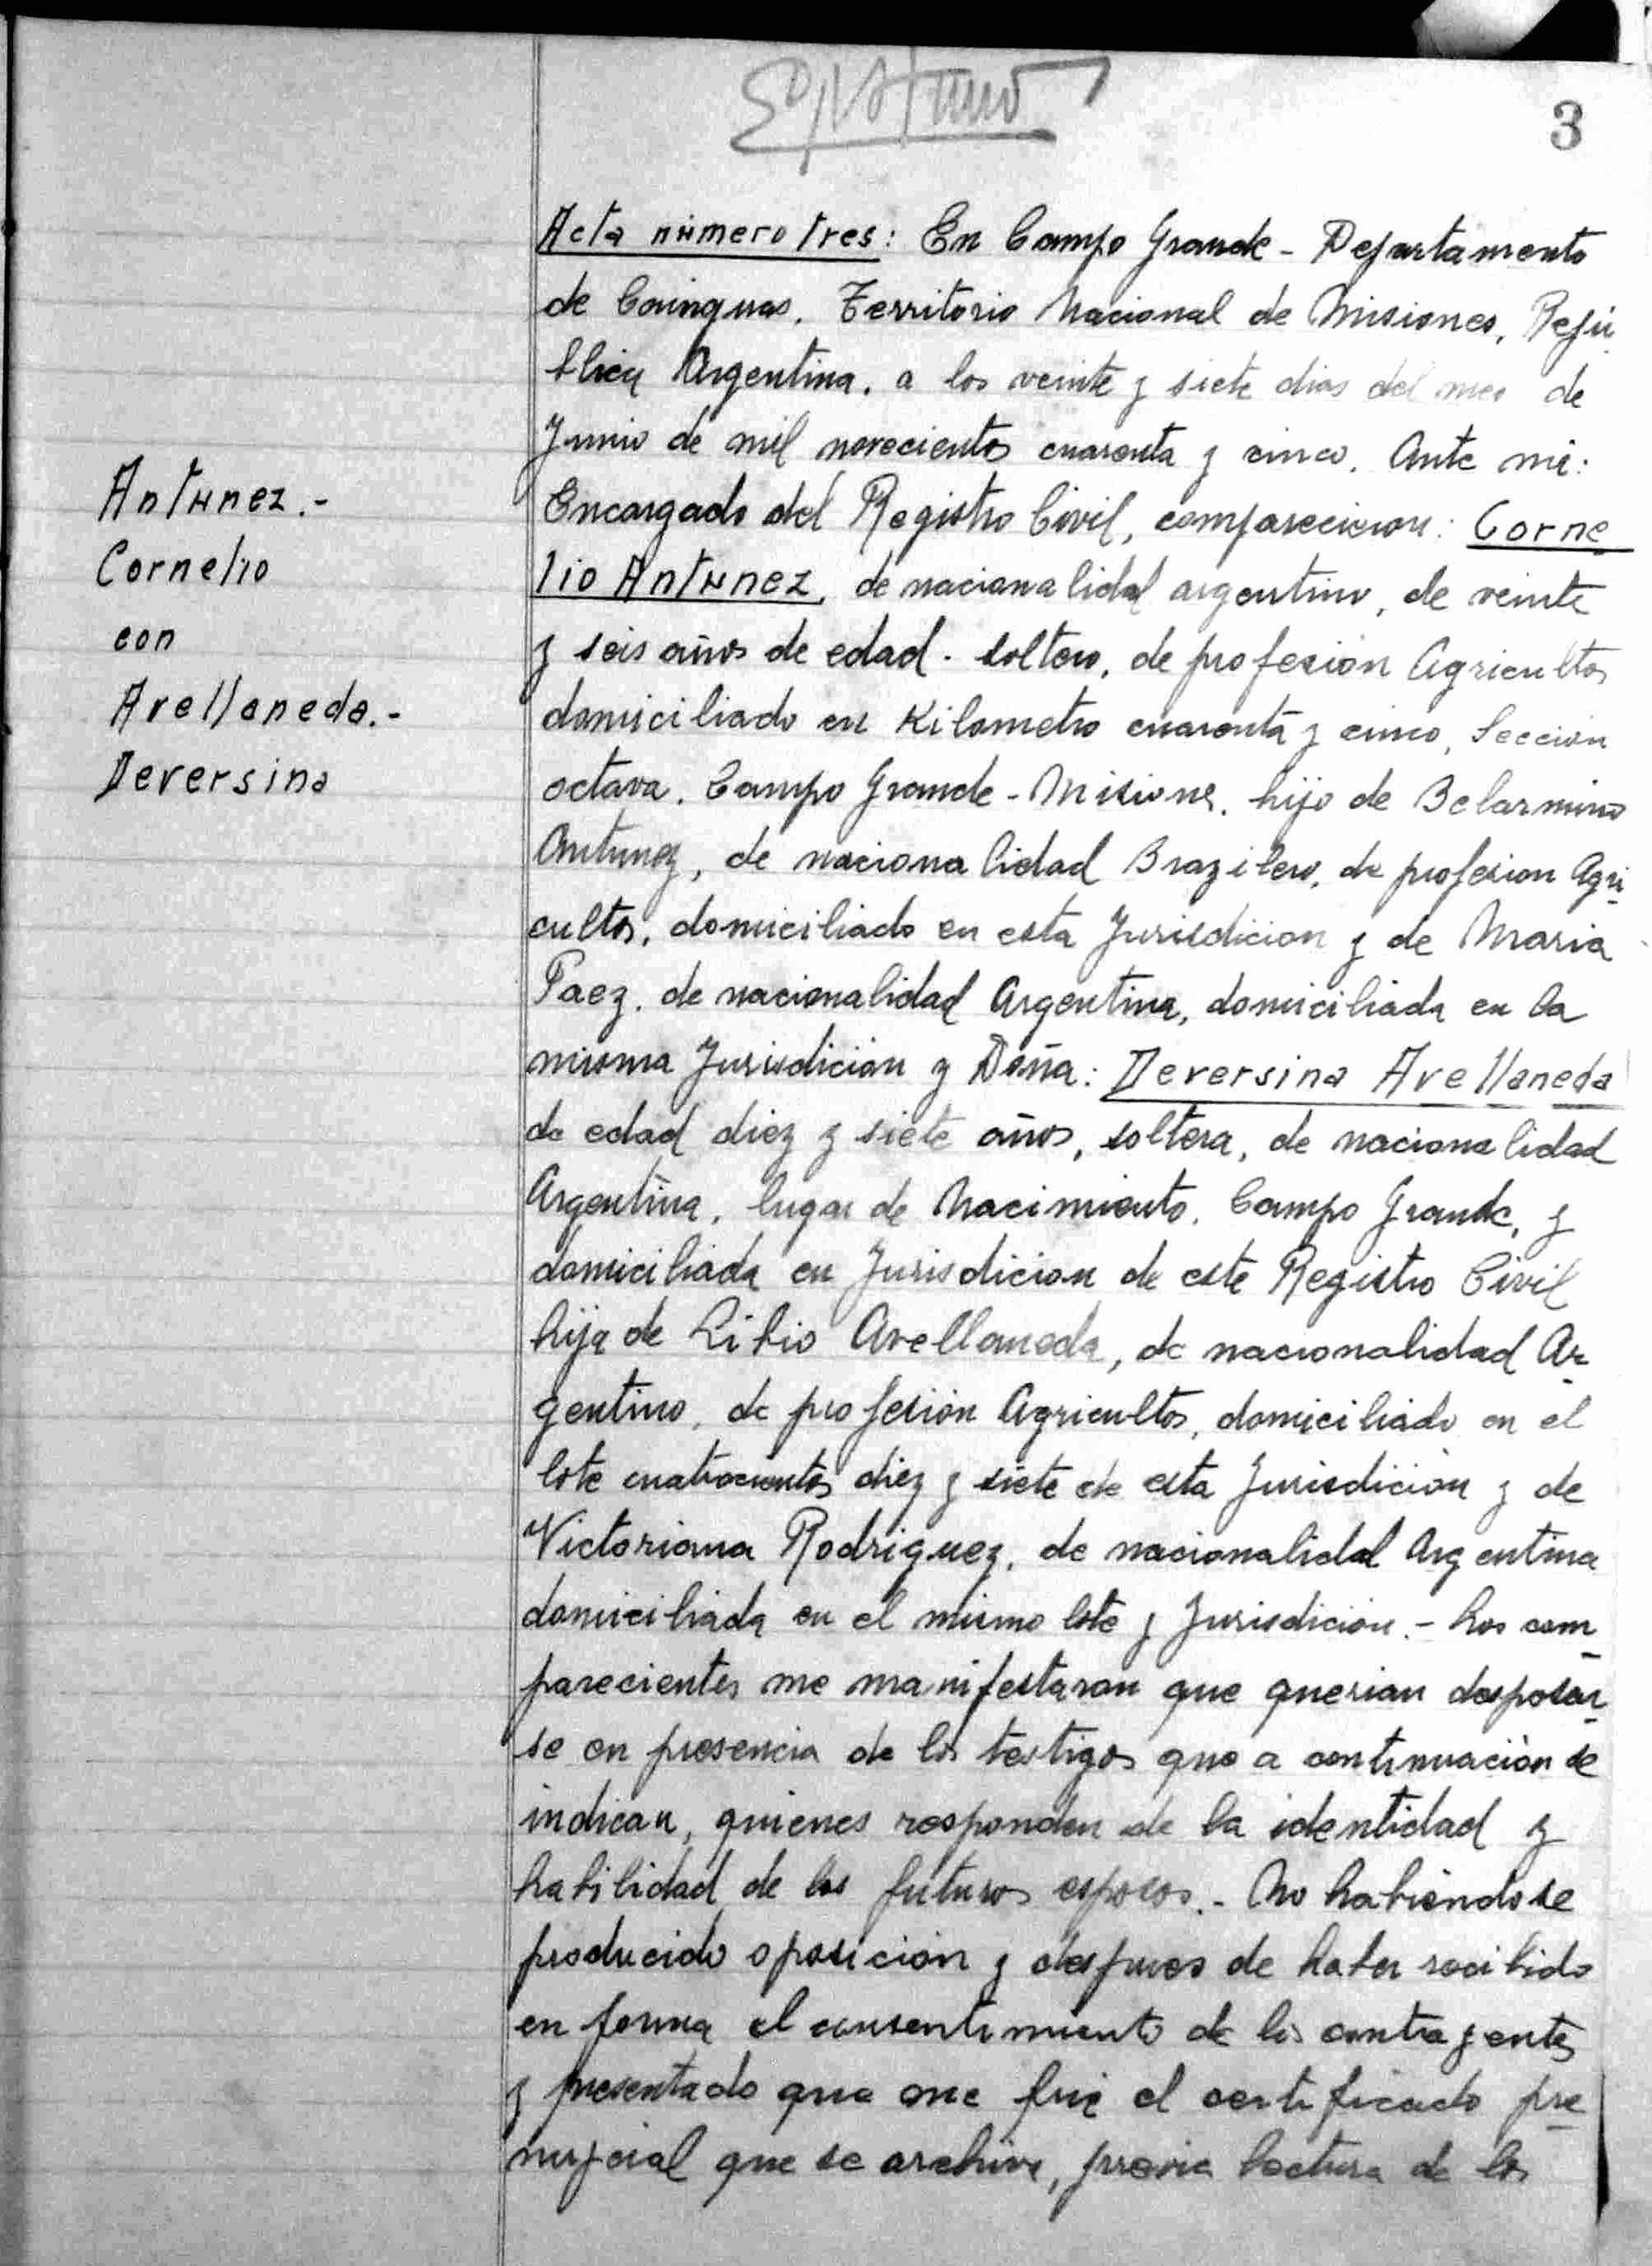 3
Acta número tres: En Campo Grande - Departamento
de Cainguas. Territorio Nacional de Misiones, Repú
blica Argentina. a los veinte y siete dias del mes de
Junio de mil novecientos cuarenta y cinco. Ante mi:
Encargado del Registro Civil, comparecieron: Corne
lio Antunez, de nacionalidad argentino, de veinte
y seis años de edad. soltero, de profesion Agricultor
domiciliado en Kilometro cuarenta y cinco, Sección
octava. Campo Grande - Misiones. hijo de Belarmino
Antunez, de nacionalidad Brazilero, de profesion Agri
cultor, domiciliado en esta Jurisdicion y de Maria
Paez. de nacionalidad Argentina, domiciliada en la
misma Jurisdición y Doña: Deversina Avellaneda
de edad diez y siete años, soltera, de nacionalidad
Argentina, lugar de Nacimiento. Campo Grande, y
domiciliada en Jurisdicion de este Registro Civil
hija de Libio Avellaneda, de nacionalidad Ar
gentino, de profesión Agricultor, domiciliado en el
lote cuatrocientos diez y siete de esta Jurisdición y de
Victoriana Rodriguez, de nacionalidad Argentina
domiciliada en el mismo lote y Jurisdición.- Los com
parecientes me manifestaron que querian desposar
se en presencia de los testigos que a continuación se
indican, quienes responden de la identidad y
habilidad de los futuros esposos.- No habiéndose
producido oposición y despues de haber recibido
en forma el consentimiento de los contrayentes
y presentado que me fué el certificado pre
nupcial que se archiva, previa lectura de los
Antunez.-
Cornelio
con
Avellaneda.-
Deversina